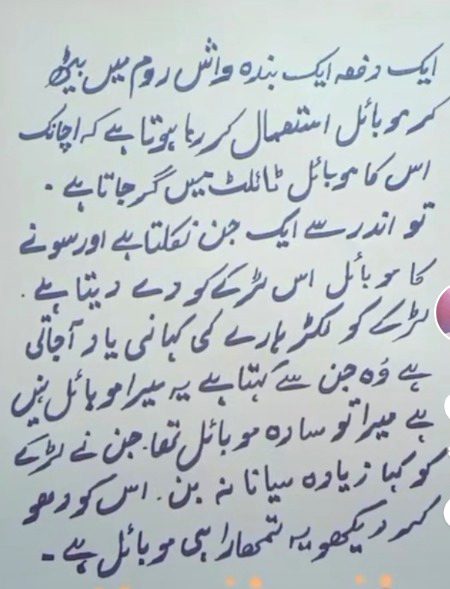 ایک دفعہ ایک بندہ واش روم میں بیٹھ
کر موبائل استعمال کر رہا ہوتا ہے کہ اچانک
اس کا موبائل ٹائلٹ میں گر جاتا ہے ۔
تو اندر سے ایک جن نکلتا ہے اور سونے
کا موبائل اس لڑکے کو دے دیتا ہے ۔
لڑکے کو لکڑہارے کی کہانی یاد آجاتی
ہے وہ جن سے کہتا ہے یہ میرا موبائل نہیں
ہے میرا تو سادہ موبائل تھا۔ جن نے لڑکے
کو کہا زیادہ سیانا نہ بن ۔ اس کو دھو
کر دیکھو یہ تمھارا ہی موبائل ہے ۔